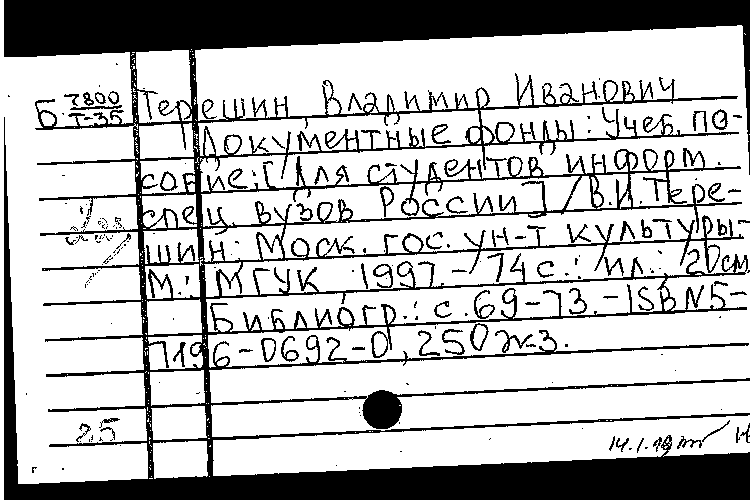 Б 7800 Терешин, Владимир Иванович
Т-35
Документные фонды: Учеб. по-
собие: [Для студентов информ.
спец. вузов России] / В.И. Тере-
шин; Моск. гос. ун-т культуры.-
М.: МГУК, 1997.- 74 с.: ил.; 20см
Библиогр.: с. 69-73.-ISBN5-
7196-0692-0, 250 экз.
25